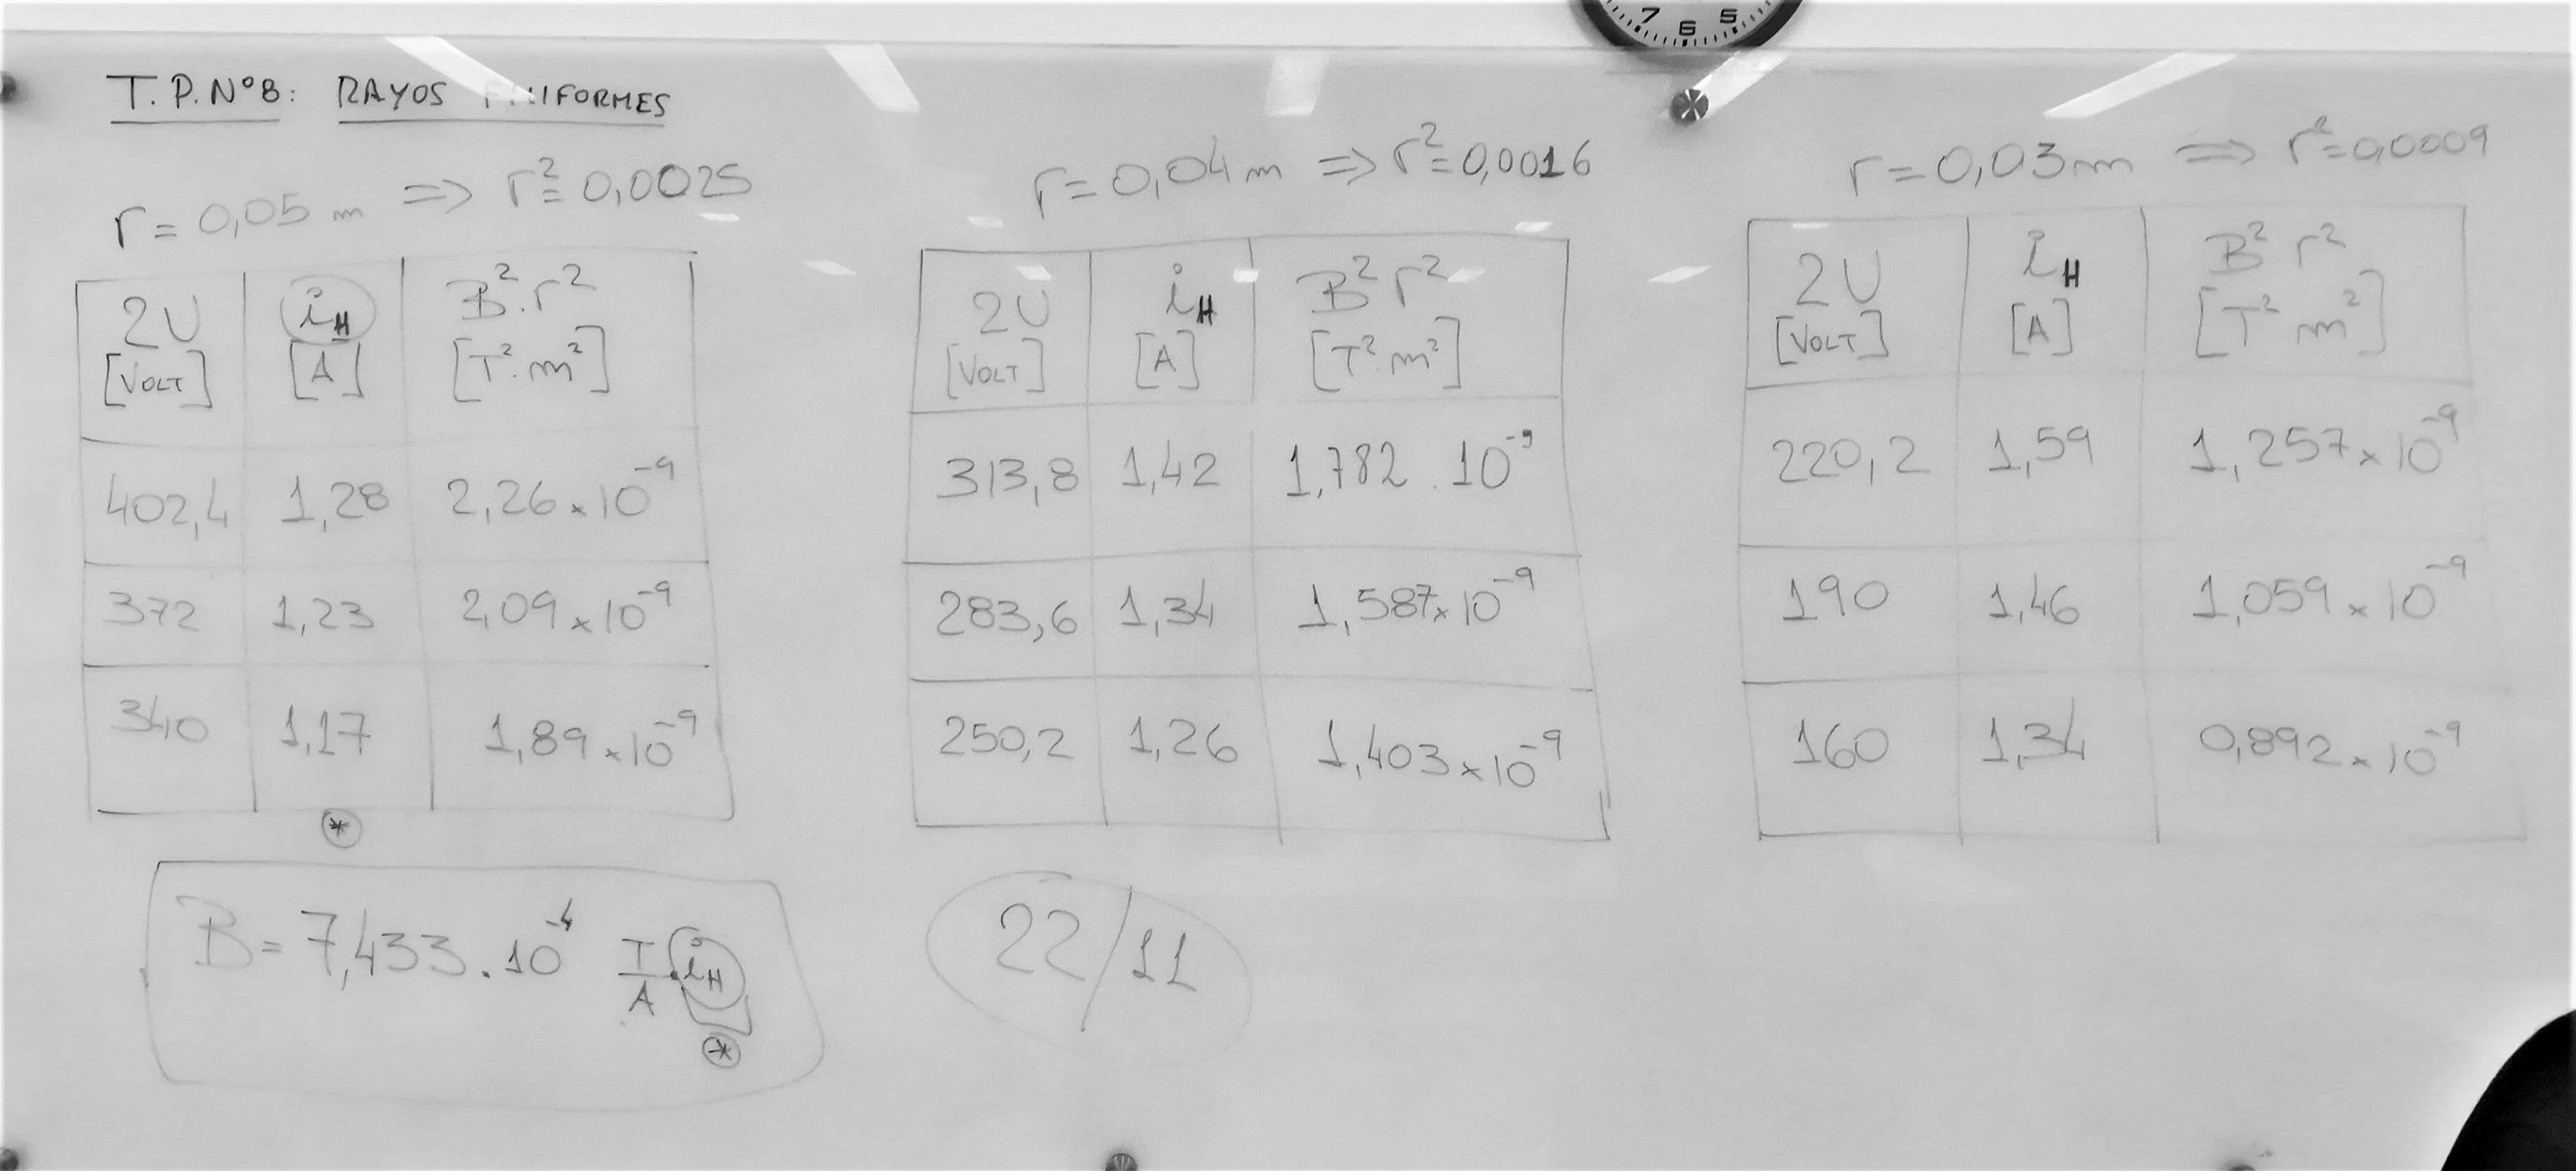 7 6 5
T.P.Nº8: RAYOS FILIFORMES
r = 0,05 m ⇒ r² = 0,0025
2U [VOLT] i_H [A] B².r² [T².m²]
402,4 1,28 2,26 x 10⁻⁹
372 1,23 2,09 x 10⁻⁹
340 1,17 1,89 x 10⁻⁹
*
B = 7,433 . 10⁻⁴ T/A . i_H
*
r = 0,04 m ⇒ r² = 0,0016
2U [VOLT] i_H [A] B² r² [T².m²]
313,8 1,42 1,782 . 10⁻⁹
283,6 1,34 1,587 x 10⁻⁹
250,2 1,26 1,403 x 10⁻⁹
22/11
r = 0,03 m ⇒ r² = 0,0009
2U [VOLT] i_H [A] B² r² [T² m²]
220,2 1,59 1,257 x 10⁻⁹
190 1,46 1,059 x 10⁻⁹
160 1,34 0,892 x 10⁻⁹